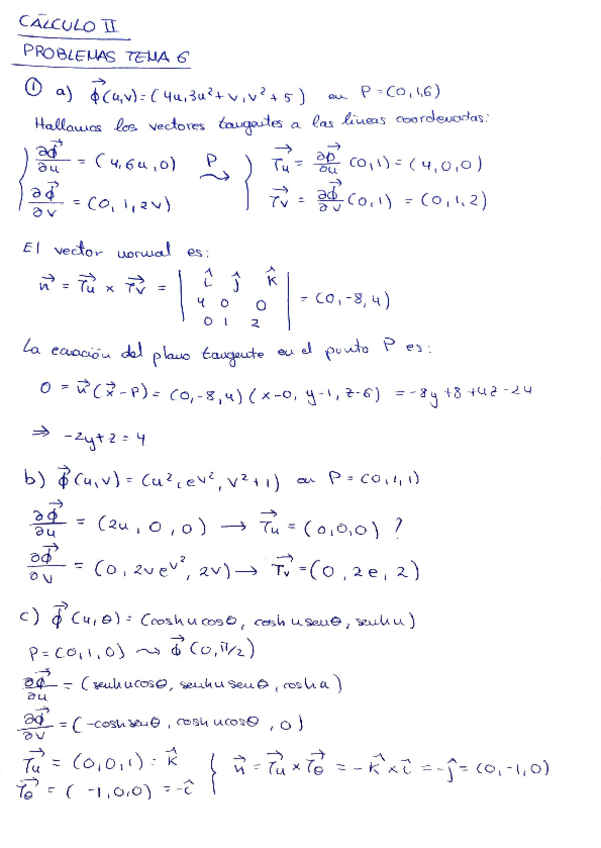 CÁLCULO II
PROBLEMAS TEMA 6
① a) Φ⃗(u,v)=(4u,3u²+v,v²+5) en P=(0,1,6)
Hallamos los vectores tangentes a las líneas coordenadas:
∂Φ⃗/∂u = (4,6u,0) P⤳ T⃗u = ∂Φ⃗/∂u (0,1) = (4,0,0)
∂Φ⃗/∂v = (0,1,2v) T⃗v = ∂Φ⃗/∂v (0,1) = (0,1,2)
El vector normal es:
n⃗ = T⃗u × T⃗v = | î ĵ k̂ |
4 0 0 = (0,-8,4)
0 1 2
La ecuación del plano tangente en el punto P es:
0 = n⃗(x⃗-P) = (0,-8,4)(x-0, y-1, z-6) = -8y+8+4z-24
⇒ -2y+z=4
b) Φ⃗(u,v)=(u², e^v², v²+1) en P=(0,1,1)
∂Φ⃗/∂u = (2u, 0, 0) → T⃗u = (0,0,0) ?
∂Φ⃗/∂v = (0, 2ve^v², 2v) → T⃗v = (0, 2e, 2)
c) Φ⃗(u,θ)=(coshu cosθ, coshu senθ, senhu)
P=(0,1,0) ⤳ Φ⃗(0,π/2)
∂Φ⃗/∂u = (senhu cosθ, senhu senθ, coshu)
∂Φ⃗/∂v = (-cosh senθ, coshu cosθ, 0)
T⃗u = (0,0,1) = k̂ n⃗ = T⃗u × T⃗θ = -k̂ × î = -ĵ = (0,-1,0)
T⃗θ = (-1,0,0) = -î